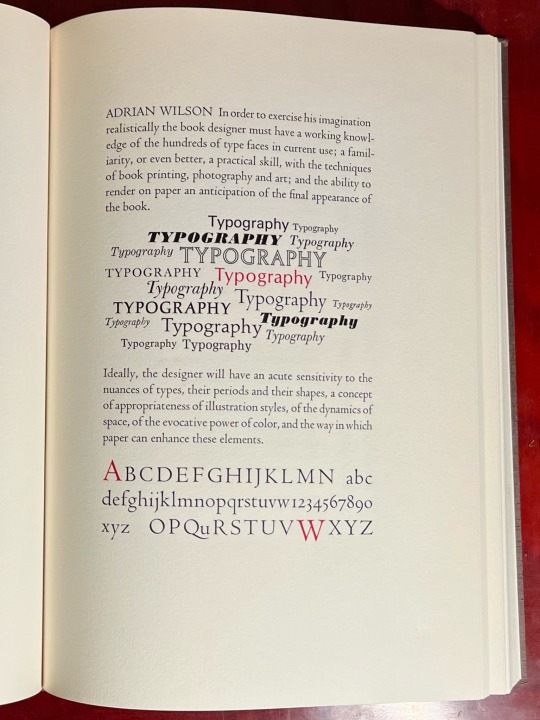 ADRIAN WILSON In order to exercise his imagination
realistically the book designer must have a working knowl-
edge of the hundreds of type faces in current use; a famil-
iarity, or even better, a practical skill, with the techniques
of book printing, photography and art; and the ability to
render on paper an anticipation of the final appearance of
the book.
Typography Typography
TYPOGRAPHY Typography
Typography TYPOGRAPHY
TYPOGRAPHY Typography Typography
Typography Typography Typography
TYPOGRAPHY Typography
Typography Typography Typography
Typography Typography
Ideally, the designer will have an acute sensitivity to the
nuances of types, their periods and their shapes, a concept
of appropriateness of illustration styles, of the dynamics of
space, of the evocative power of color, and the way in which
paper can enhance these elements.
ABCDEFGHIJKLMN abc
defghijklmnopqrstuvw1234567890
xyz OPQuRSTUVWXYZ